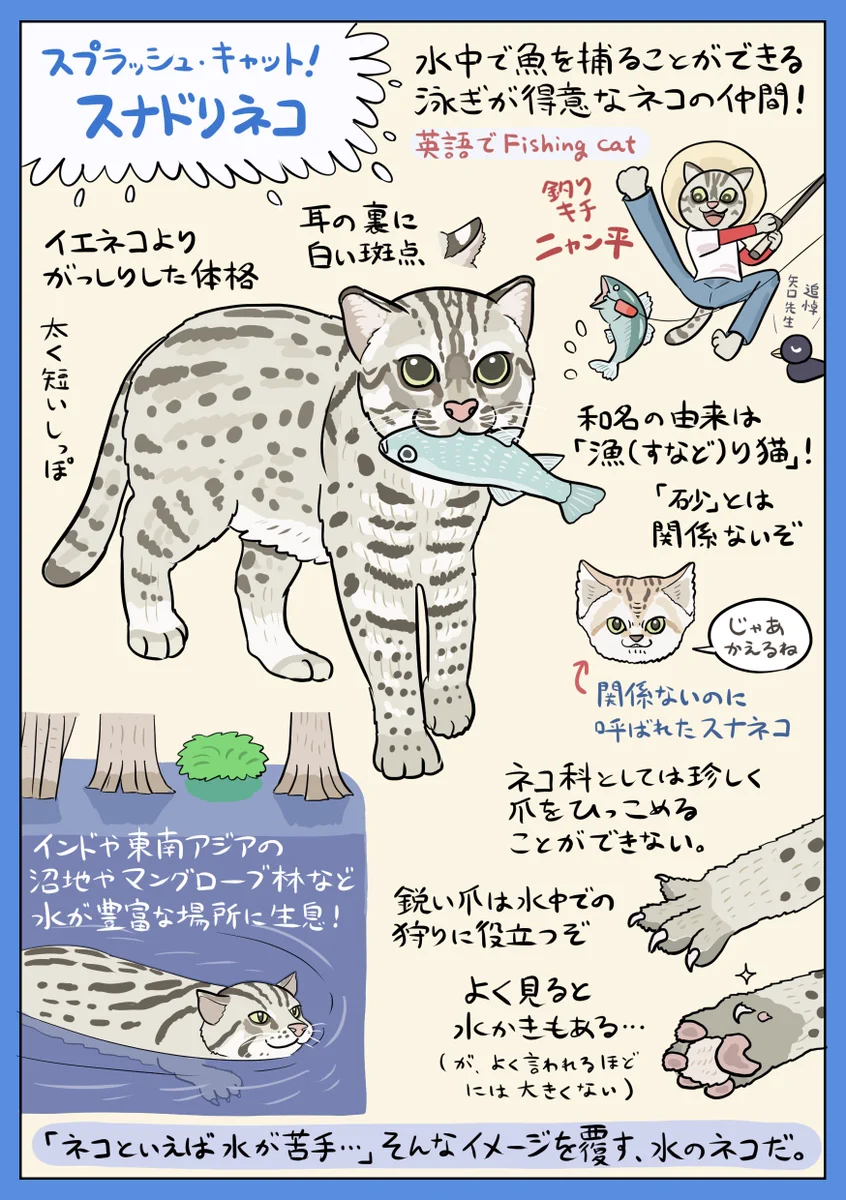 スプラッシュ・キャット!
スナドリネコ
水中で魚を捕ることができる
泳ぎが得意なネコの仲間!
英語でFishing cat
釣り
キチ
ニャン平
追悼
矢口先生
イエネコより
がっしりした体格
耳の裏に
白い斑点
太く短いしっぽ
和名の由来は
「漁(すなど)り猫」!
「砂」とは
関係ないぞ
じゃあ
かえるね
関係ないのに
呼ばれたスナネコ
ネコ科としては珍しく
爪をひっこめる
ことができない。
鋭い爪は水中での
狩りに役立つぞ
よく見ると
水かきもある…
(が、よく言われるほど
には大きくない)
インドや東南アジアの
沼地やマングローブ林など
水が豊富な場所に生息!
「ネコといえば水が苦手…」そんなイメージを覆す、水のネコだ。